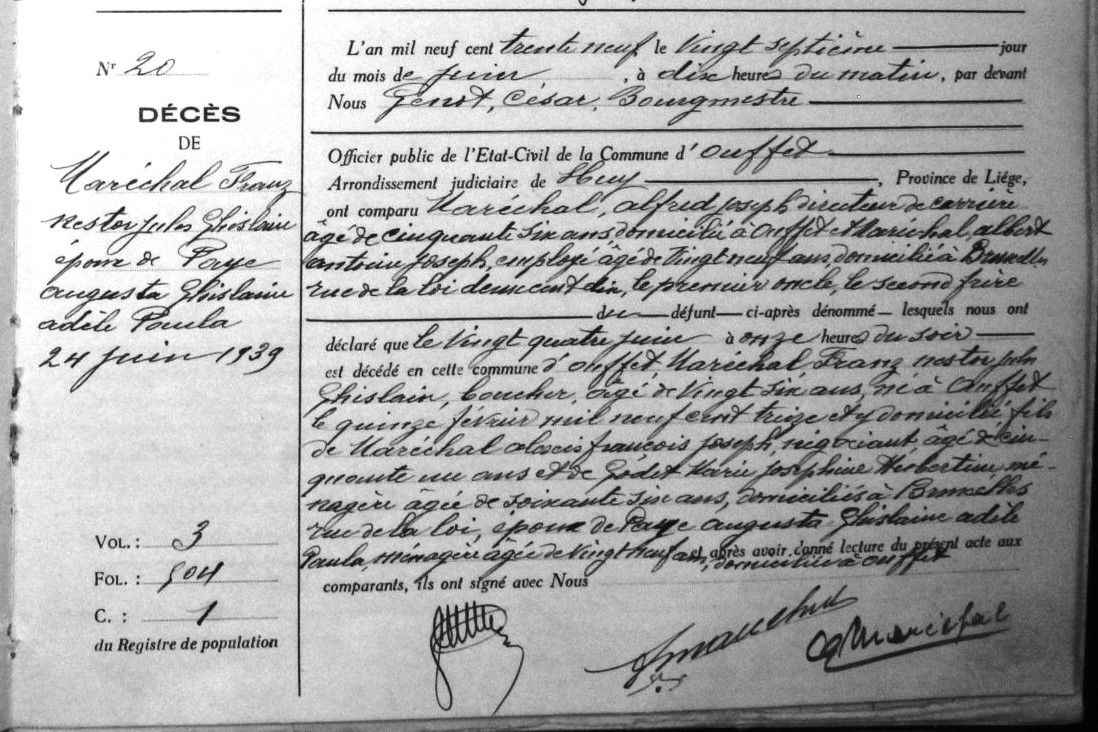 Nr 20
DÉCÈS
DE
Maréchal Franz
Nestor Jules Ghislain
époux de Paye
Augusta Ghislaine
Adèle Paula
24 juin 1939
VOL. : 3
FOL. : 504
C. : 1
du Registre de population
L'an mil neuf cent trente neuf le vingt septième jour
du mois de juin, à dix heures du matin, par devant
Nous Genot, César, Bourgmestre
Officier public de l'Etat-Civil de la Commune d' Ouffet
Arrondissement judiciaire de Huy, Province de Liége,
ont comparu Maréchal, Alfred Joseph directeur de carrière
âgé de cinquante six ans, domicilié à Ouffet et Maréchal, Albert
Antoine Joseph, employé âgé de vingt neuf ans domicilié à Bruxelles
rue de la loi deux cent dix, le premier oncle, le second frère
du défunt ci-après dénommé lesquels nous ont
déclaré que le vingt quatre juin à onze heures du soir
est décédé en cette commune d'Ouffet Maréchal, Franz Nestor Jules
Ghislain, boucher, âgé de vingt six ans, né à Ouffet
le quinze février mil neuf cent treize et y domicilié, fils
de Maréchal François Joseph, négociant âgé de cin-
quante un ans et de Godet Marie Joséphine Hubertine, mé-
nagère âgée de soixante six ans, domiciliés à Bruxelles
rue de la loi, époux de Paye Augusta Ghislaine Adèle
Paula, ménagère âgée de vingt neuf ans, domiciliée à Ouffet
et après avoir donné lecture du présent acte aux
comparants, ils ont signé avec Nous
Maréchal